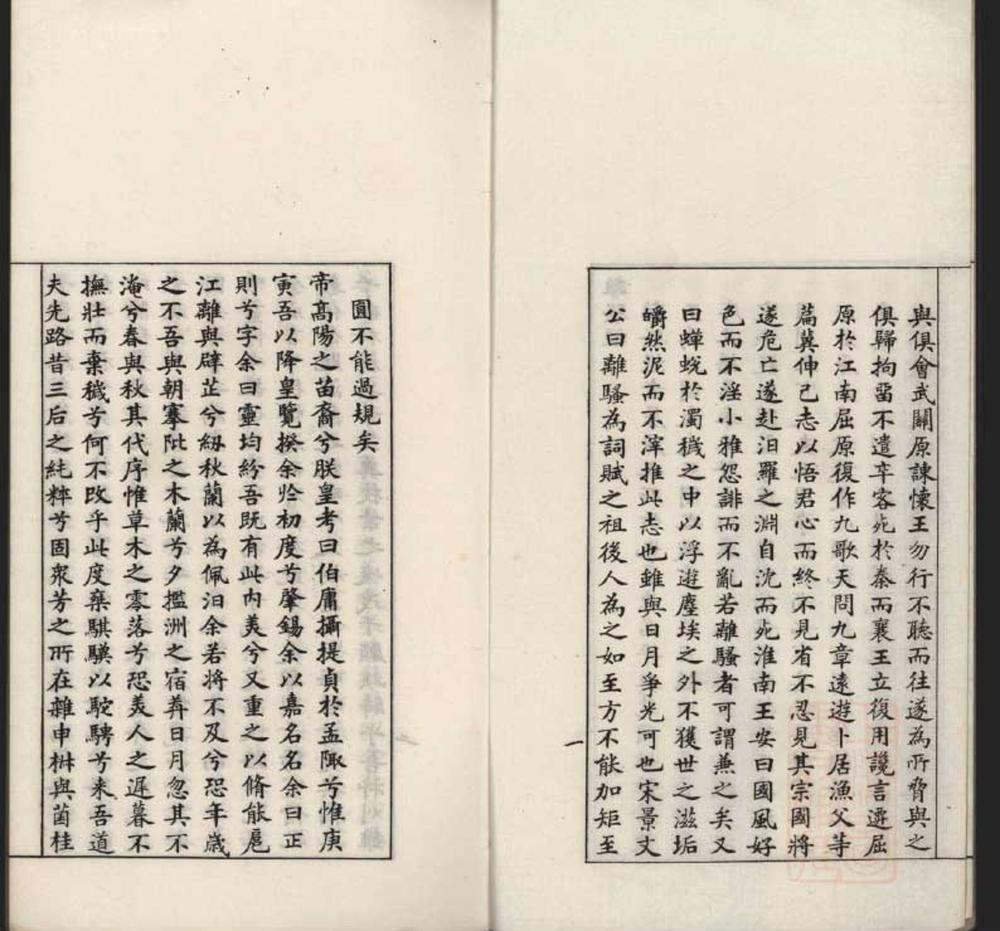 與俱會武關原諫懷王勿行不聽而往遂為所脅與之
俱歸拘留不遣卒客死於秦而襄王立復用讒言遷屈
原於江南屈原復作九歌天問九章遠遊卜居漁父等
篇冀伸己志以悟君心而終不見省不忍見其宗國將
遂危亡遂赴汨羅之淵自沈而死淮南王安曰國風好
色而不淫小雅怨誹而不亂若離騷者可謂兼之矣又
曰蟬蛻於濁穢之中以浮遊塵埃之外不獲世之滋垢
皭然泥而不滓推此志也雖與日月爭光可也宋景文
公曰離騷為詞賦之祖後人為之如至方不能加矩至
一
圓不能過規矣
帝高陽之苗裔兮朕皇考曰伯庸攝提貞於孟陬兮惟庚
寅吾以降皇覽揆余於初度兮肇錫余以嘉名名余曰正
則兮字余曰靈均紛吾既有此內美兮又重之以脩能扈
江離與辟芷兮紉秋蘭以為佩汩余若將不及兮恐年歲
之不吾與朝搴阰之木蘭兮夕攬洲之宿莽日月忽其不
淹兮春與秋其代序惟草木之零落兮恐美人之遲暮不
撫壯而棄穢兮何不改乎此度棄騏驥以駝騁兮来吾道
夫先路昔三后之純粹兮固衆芳之所在雜申椒與菌桂